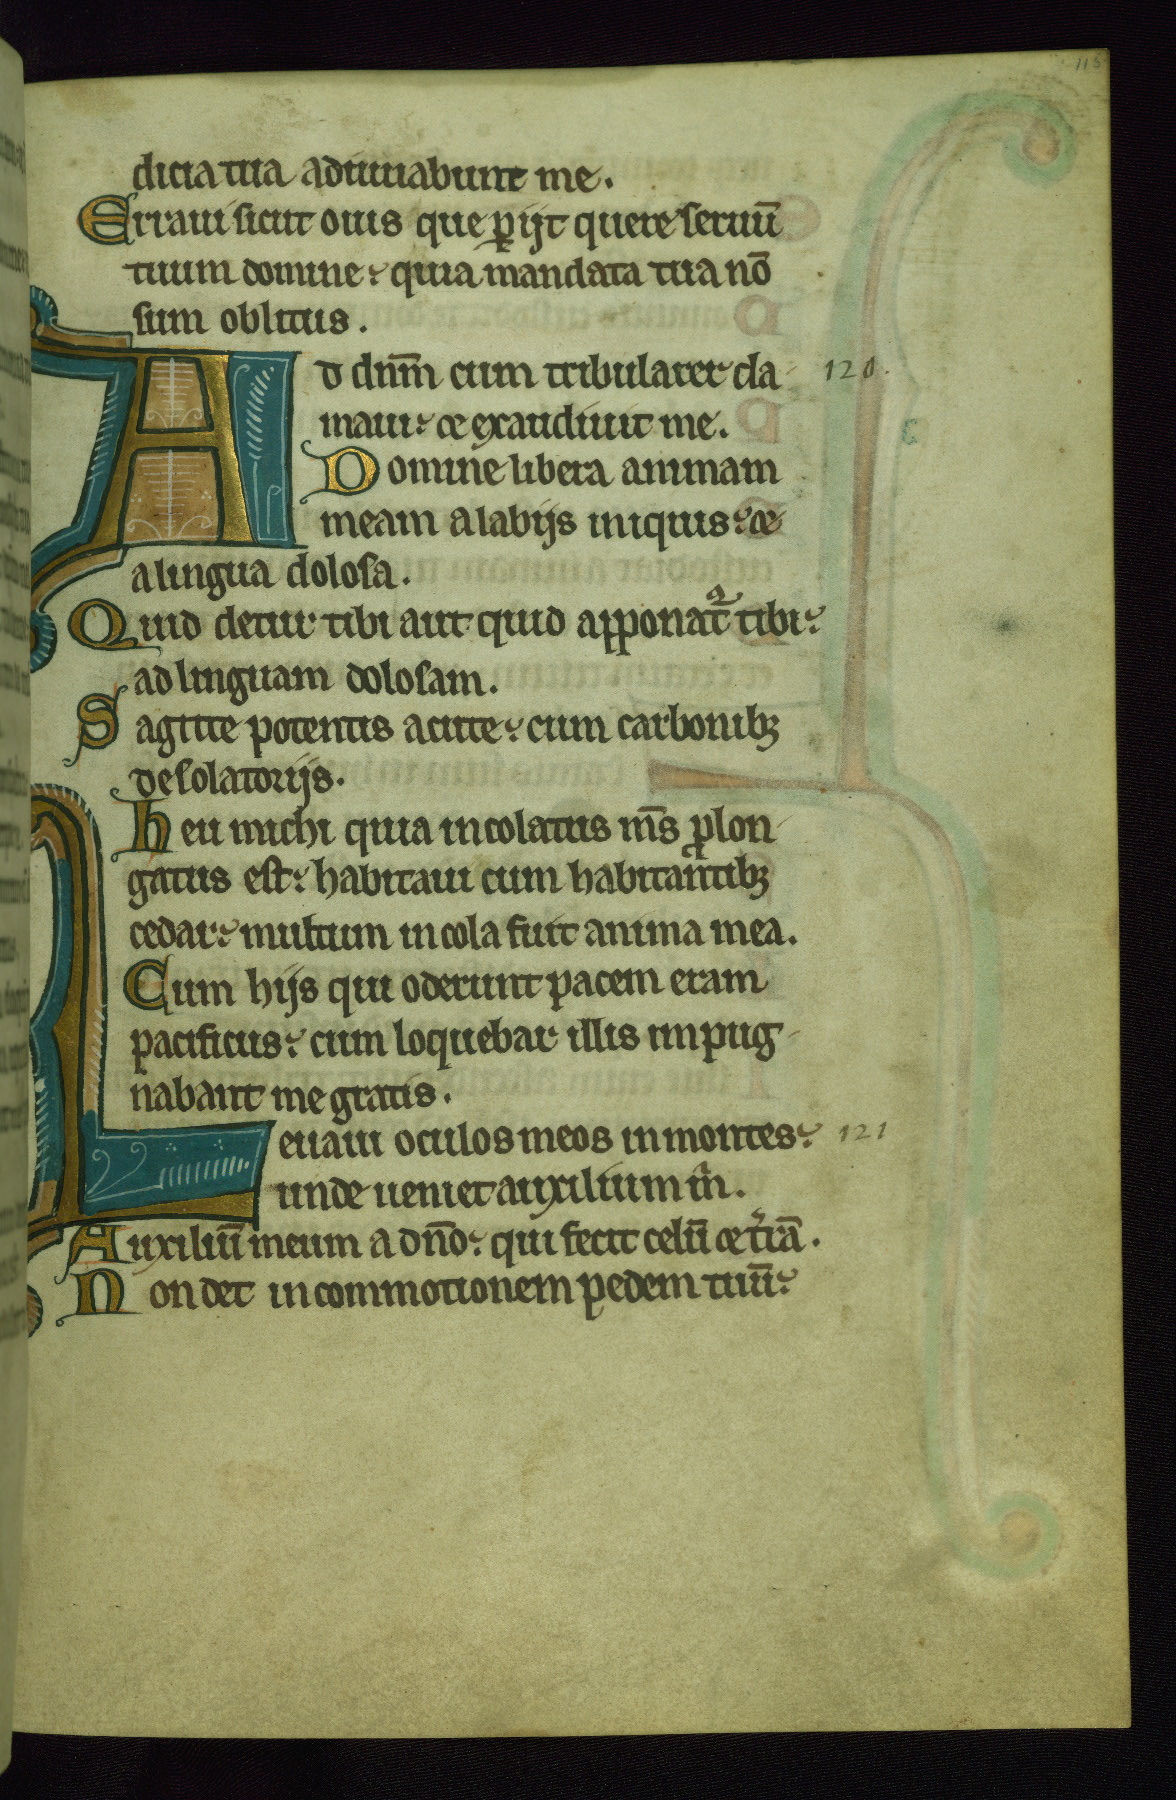 115
dicia tua adiuuabunt me.
Erraui sicut ouis que p̱ijt quere seruū
tuum domine: quia mandata tua nō
sum oblitus.
Ad dn̄m cum tribularer cla 120.
maui: et exaudiuit me.
Domine libera animam
meam a labijs iniquis: et
a lingua dolosa.
Quid detur tibi aut quid apponat᷑ tibi:
ad linguam dolosam.
Sagitte potentis acute: cum carbonibꝫ
desolatorijs.
heu michi quia incolatus m̄s ꝓlon
gatus est: habitaui cum habitantibꝫ
cedar: multum incola fuit anima mea.
Cum hijs qui oderunt pacem eram
pacificus: cum loquebar illis impug
nabant me gratis.
Leuaui oculos meos in montes: 121
unde ueniet auxilium m̄.
Auxiliū meum a dn̄o: qui fecit celū et t̄rā.
Non det in commotionem pedem tuū: